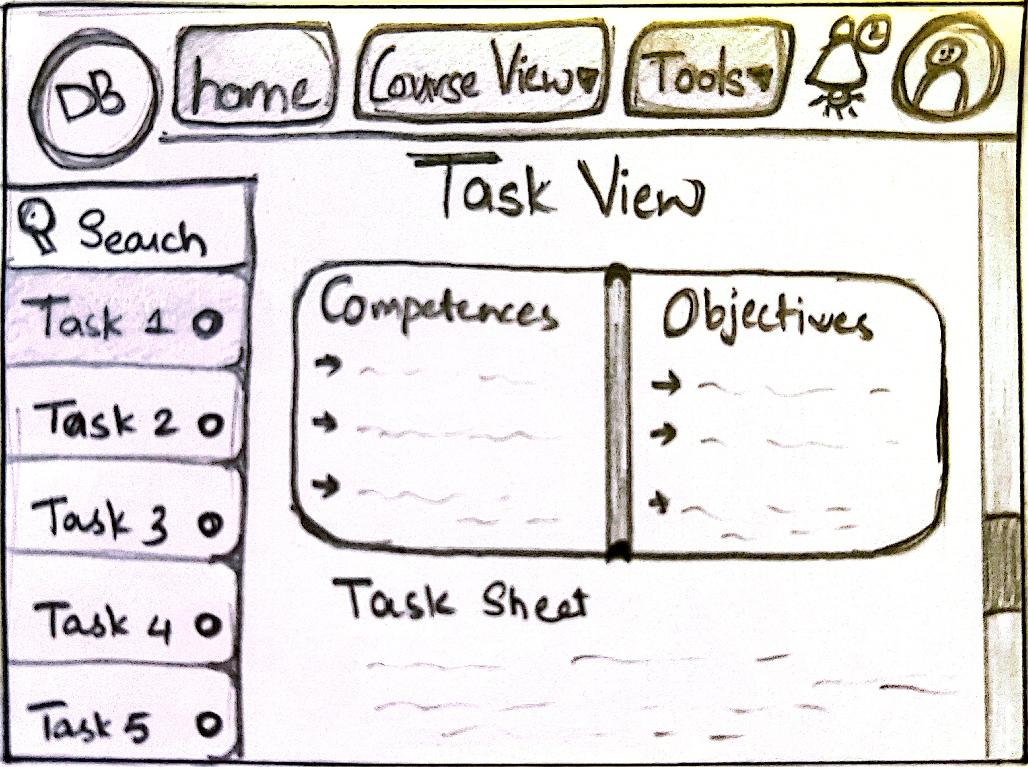 DB
home
Course View
Tools
2
Task View
Search
Task 1
Task 2
Task 3
Task 4
Task 5
Competences
Objectives
Task Sheet